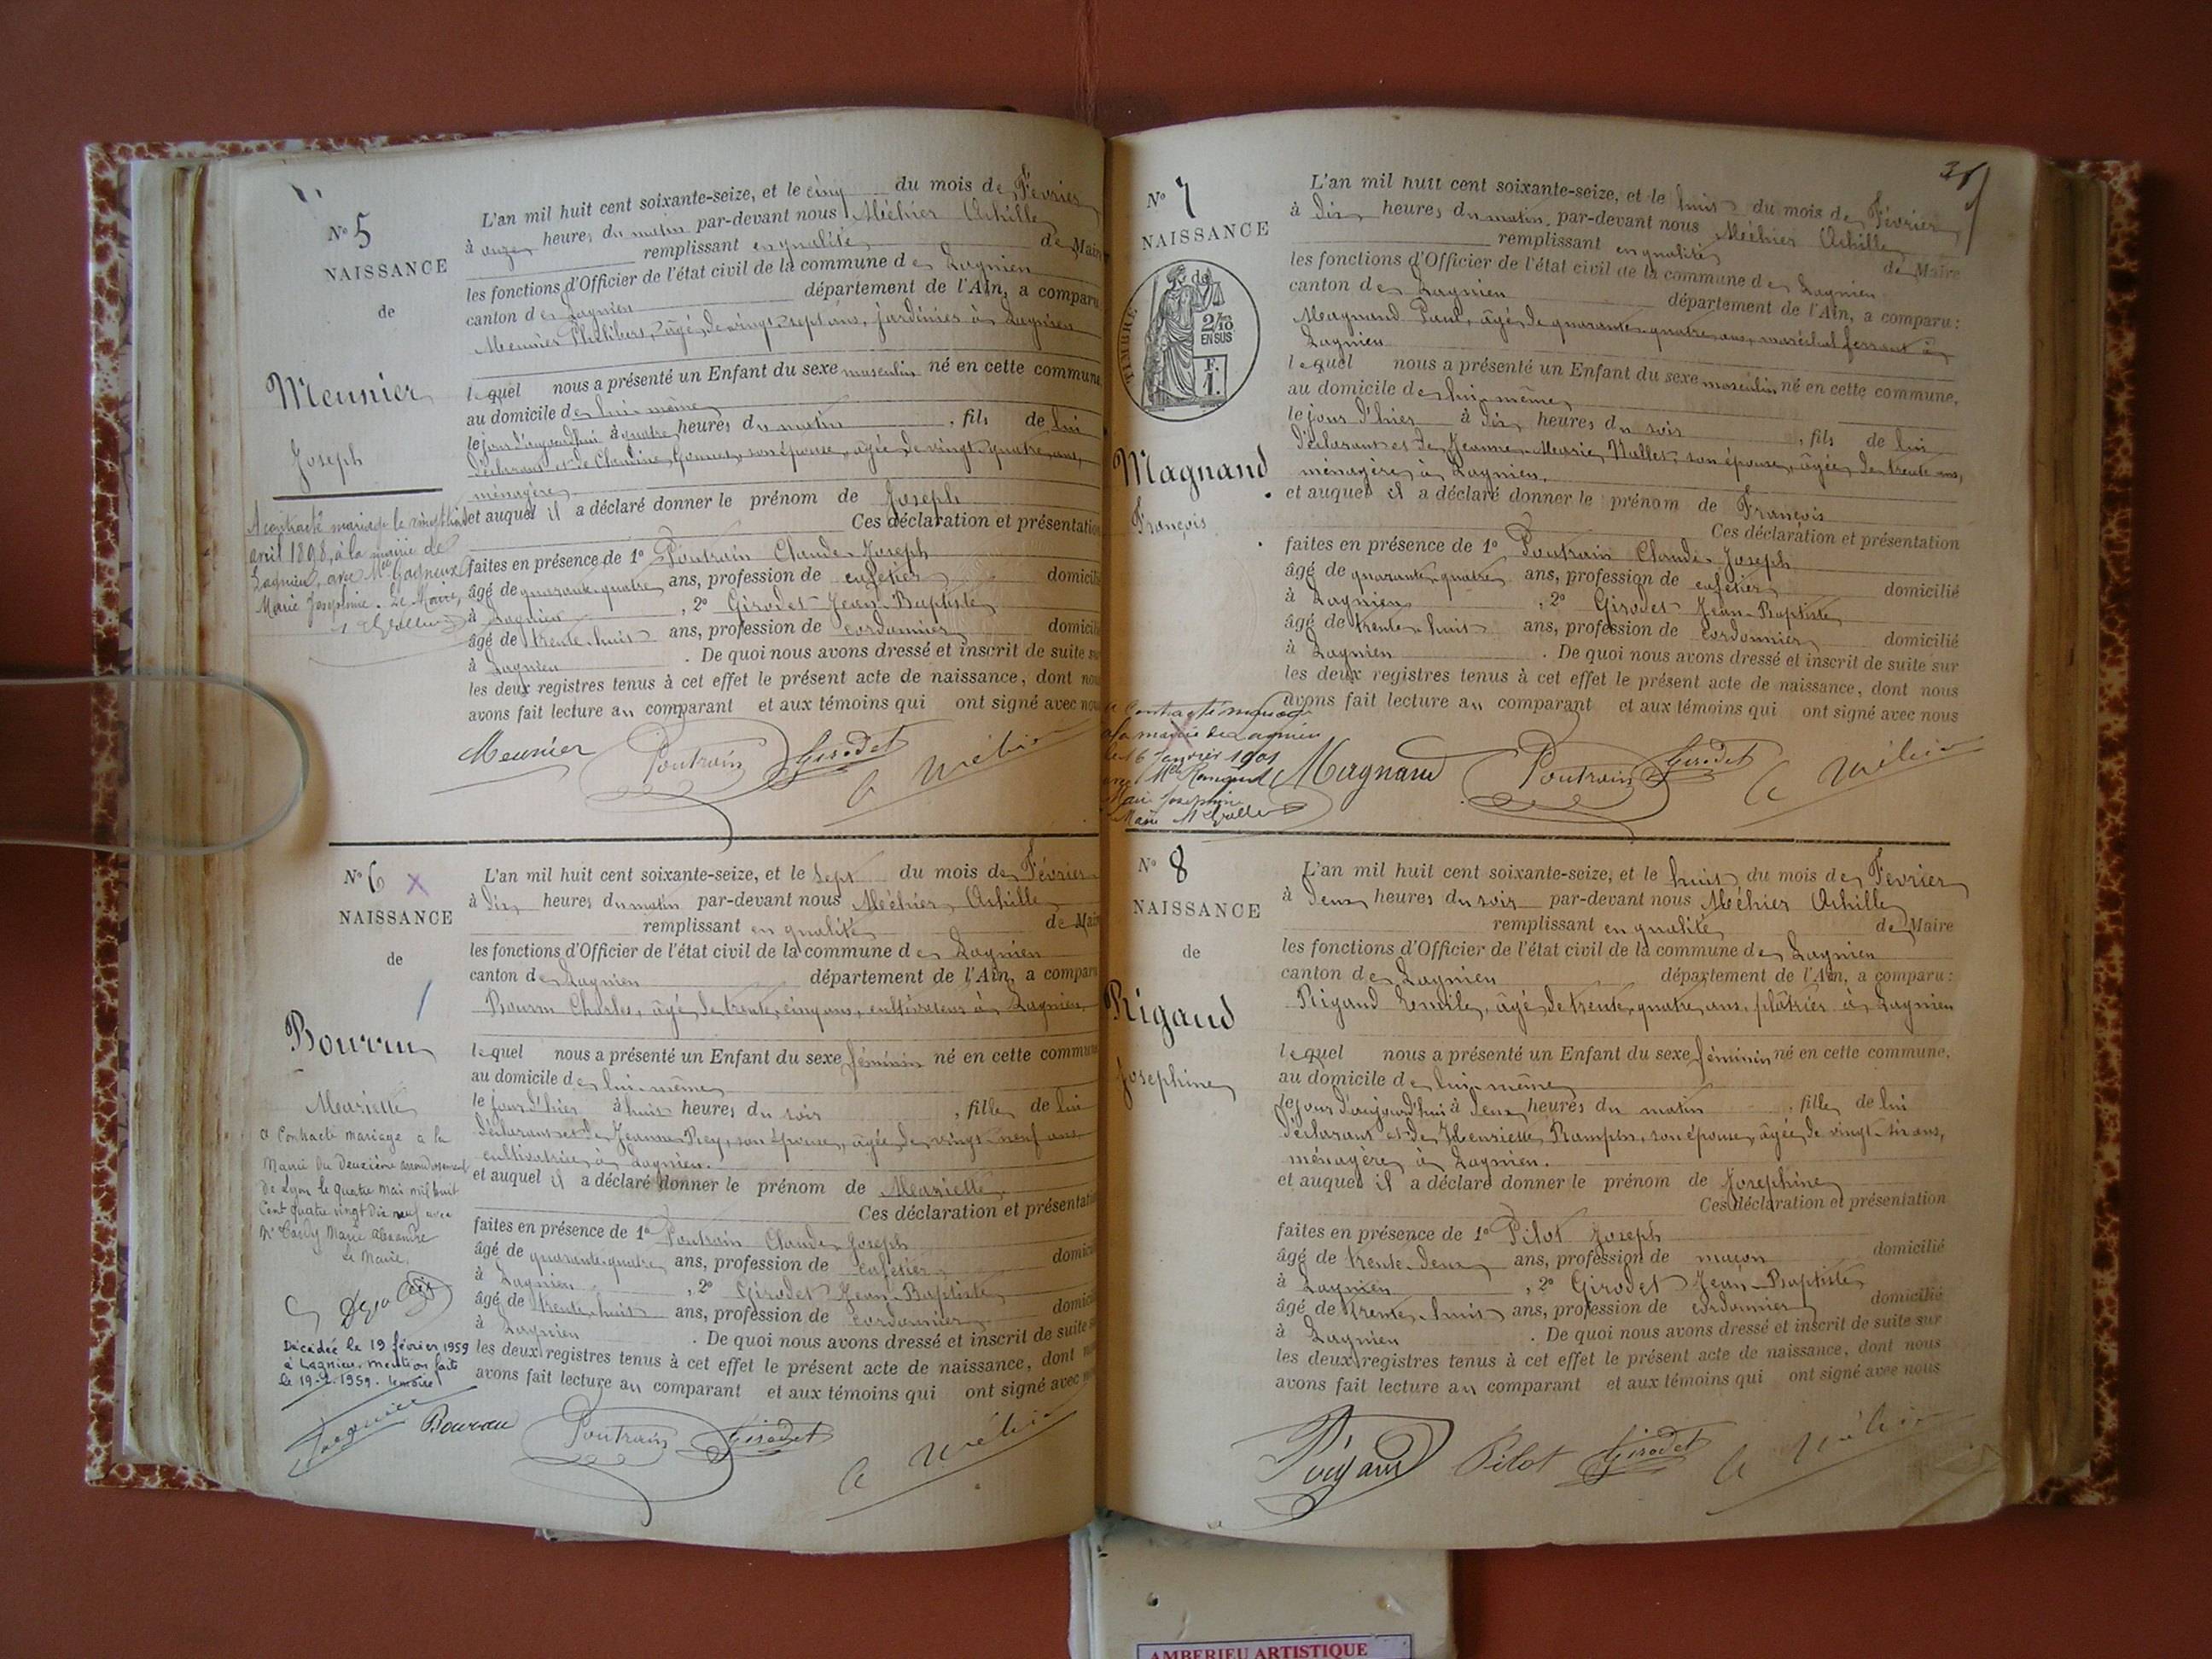 N° 5
NAISSANCE
de
Meunier
Joseph
A contracté mariage le vingt trois
avril 1898, à la mairie de
Lagnieu, avec Mlle Gagneux
Marie Joséphine. Le Maire,
L'an mil huit cent soixante-seize, et le cinq du mois de Février
à onze heures du matin par-devant nous Méhier Achille
remplissant en qualité de Maire
les fonctions d'Officier de l'état civil de la commune de Lagnieu
canton de Lagnieu département de l'Ain, a comparu
Meunier Philibert, âgé de vingt-sept ans, jardinier à Lagnieu
lequel nous a présenté un Enfant du sexe masculin né en cette commune
au domicile de lui-même
le jour d'aujourd'hui à quatre heures du matin, fils de lui
déclarant et de Claudine, son épouse, âgée de vingt-quatre ans,
ménagère
et auquel il a déclaré donner le prénom de Joseph
Ces déclaration et présentation
faites en présence de 1° Poutrain Claude-Joseph
âgé de quarante-quatre ans, profession de cafetier domicilié
à Lagnieu, 2° Girodet Jean-Baptiste
âgé de trente-huit ans, profession de cordonnier domicilié
à Lagnieu. De quoi nous avons dressé et inscrit de suite sur
les deux registres tenus à cet effet le présent acte de naissance, dont nous
avons fait lecture au comparant et aux témoins qui ont signé avec nous
Meunier Poutrain Girodet A Méhier
N° 6
NAISSANCE
de
Bourru
Mariette
a contracté mariage a la
Mairie du deuxième arrondissement
de Lyon le quatre mai mil huit
cent quatre vingt dix neuf avec
Mr Marie Alexandre
le Maire,
Décédée le 19 février 1959
à Lagnieu. mention faite
le 19-2-1959.
L'an mil huit cent soixante-seize, et le sept du mois de Février
à dix heures du matin par-devant nous Méhier Achille
remplissant en qualité de Maire
les fonctions d'Officier de l'état civil de la commune de Lagnieu
canton de Lagnieu département de l'Ain, a comparu
Bourru Charles, âgé de trente-cinq ans, cultivateur à Lagnieu
lequel nous a présenté un Enfant du sexe féminin né en cette commune
au domicile de lui-même
le jour d'hier à huit heures du soir, fille de lui
déclarant et de Jeanne Rey, son épouse, âgée de vingt-neuf ans
cultivatrice à Lagnieu.
et auquel il a déclaré donner le prénom de Mariette
Ces déclaration et présentation
faites en présence de 1° Poutrain Claude-Joseph
âgé de quarante-quatre ans, profession de cafetier domicilié
à Lagnieu, 2° Girodet Jean-Baptiste
âgé de trente-huit ans, profession de cordonnier domicilié
à Lagnieu. De quoi nous avons dressé et inscrit de suite sur
les deux registres tenus à cet effet le présent acte de naissance, dont nous
avons fait lecture au comparant et aux témoins qui ont signé avec nous
Bourru Poutrain Girodet A Méhier
N° 7
NAISSANCE
de
TIMBRE
2/10
EN SUS
F.
1.
Magnand
François
a contracté mariage
a la mairie de Lagnieu
le 16 janvier 1901
avec Mlle
Marie Joséphine
L'an mil huit cent soixante-seize, et le huit du mois de Février
à dix heures du matin, par-devant nous Méhier Achille
remplissant en qualité de Maire
les fonctions d'Officier de l'état civil de la commune de Lagnieu
canton de Lagnieu département de l'Ain, a comparu :
Magnand Paul, âgé de quarante-quatre ans, maréchal ferrant à
Lagnieu
lequel nous a présenté un Enfant du sexe masculin né en cette commune,
au domicile de lui-même
le jour d'hier à dix heures du soir, fils de lui
déclarant et de Jeanne-Marie Nallet, son épouse, âgée de trente ans,
ménagère à Lagnieu.
et auquel il a déclaré donner le prénom de François
Ces déclaration et présentation
faites en présence de 1° Poutrain Claude-Joseph
âgé de quarante-quatre ans, profession de cafetier domicilié
à Lagnieu, 2° Girodet Jean-Baptiste
âgé de trente-huit ans, profession de cordonnier domicilié
à Lagnieu. De quoi nous avons dressé et inscrit de suite sur
les deux registres tenus à cet effet le présent acte de naissance, dont nous
avons fait lecture au comparant et aux témoins qui ont signé avec nous
Magnand Poutrain Girodet A Méhier
N° 8
NAISSANCE
de
Rigaud
Joséphine
L'an mil huit cent soixante-seize, et le huit du mois de Février
à deux heures du soir par-devant nous Méhier Achille
remplissant en qualité de Maire
les fonctions d'Officier de l'état civil de la commune de Lagnieu
canton de Lagnieu département de l'Ain, a comparu :
Rigaud Emile, âgé de trente-quatre ans, plâtrier à Lagnieu
lequel nous a présenté un Enfant du sexe féminin né en cette commune,
au domicile de lui-même
le jour d'aujourd'hui à deux heures du matin, fille de lui
déclarant et de Henriette Rampin, son épouse, âgée de vingt-six ans,
ménagère à Lagnieu.
et auquel il a déclaré donner le prénom de Joséphine
Ces déclaration et présentation
faites en présence de 1° Pilot Joseph
âgé de trente-deux ans, profession de maçon domicilié
à Lagnieu, 2° Girodet Jean-Baptiste
âgé de trente-huit ans, profession de cordonnier domicilié
à Lagnieu. De quoi nous avons dressé et inscrit de suite sur
les deux registres tenus à cet effet le présent acte de naissance, dont nous
avons fait lecture au comparant et aux témoins qui ont signé avec nous
Rigaud Pilot Girodet A Méhier
AMBERIEU ARTISTIQUE